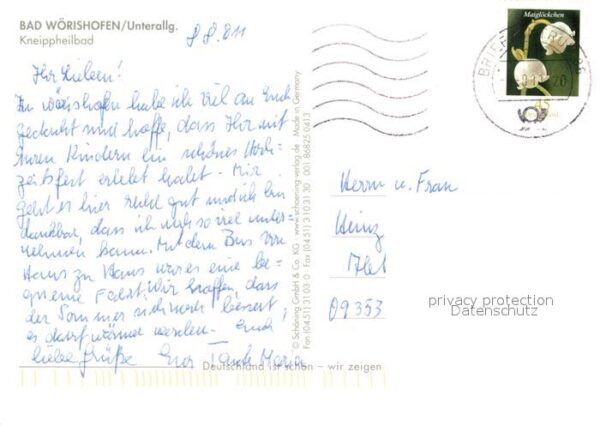 BAD WÖRISHOFEN/Unterallg.
Kneippheilbad
8.8.811
Ihr Lieben!
In Wörishofen habe ich viel an Euch
gedacht und hoffe, dass Ihr mit
Euren Kindern ein schönes Hoch-
zeitsfest erlebt habt. Mir
geht es hier recht gut und ich bin
dankbar, dass ich noch so viel unter-
nehmen kann. Mit dem Bus von
Haus zu Haus war es eine be-
queme Fahrt. Wir hoffen, dass
der Sommer sich noch bessert,
es darf wärmer werden. Euch
liebe Grüße Eure Tante Maria
© Schöning GmbH & Co. KG · www.schoening-verlag.de · Made in Germany
Fon (04 51) 31 03 0 · Fax (04 51) 3 10 31 30 001 86825 0413
Deutschland ist schön – wir zeigen
Maiglöckchen
45
Herrn u. Frau
Heinz
09353
privacy protection
Datenschutz